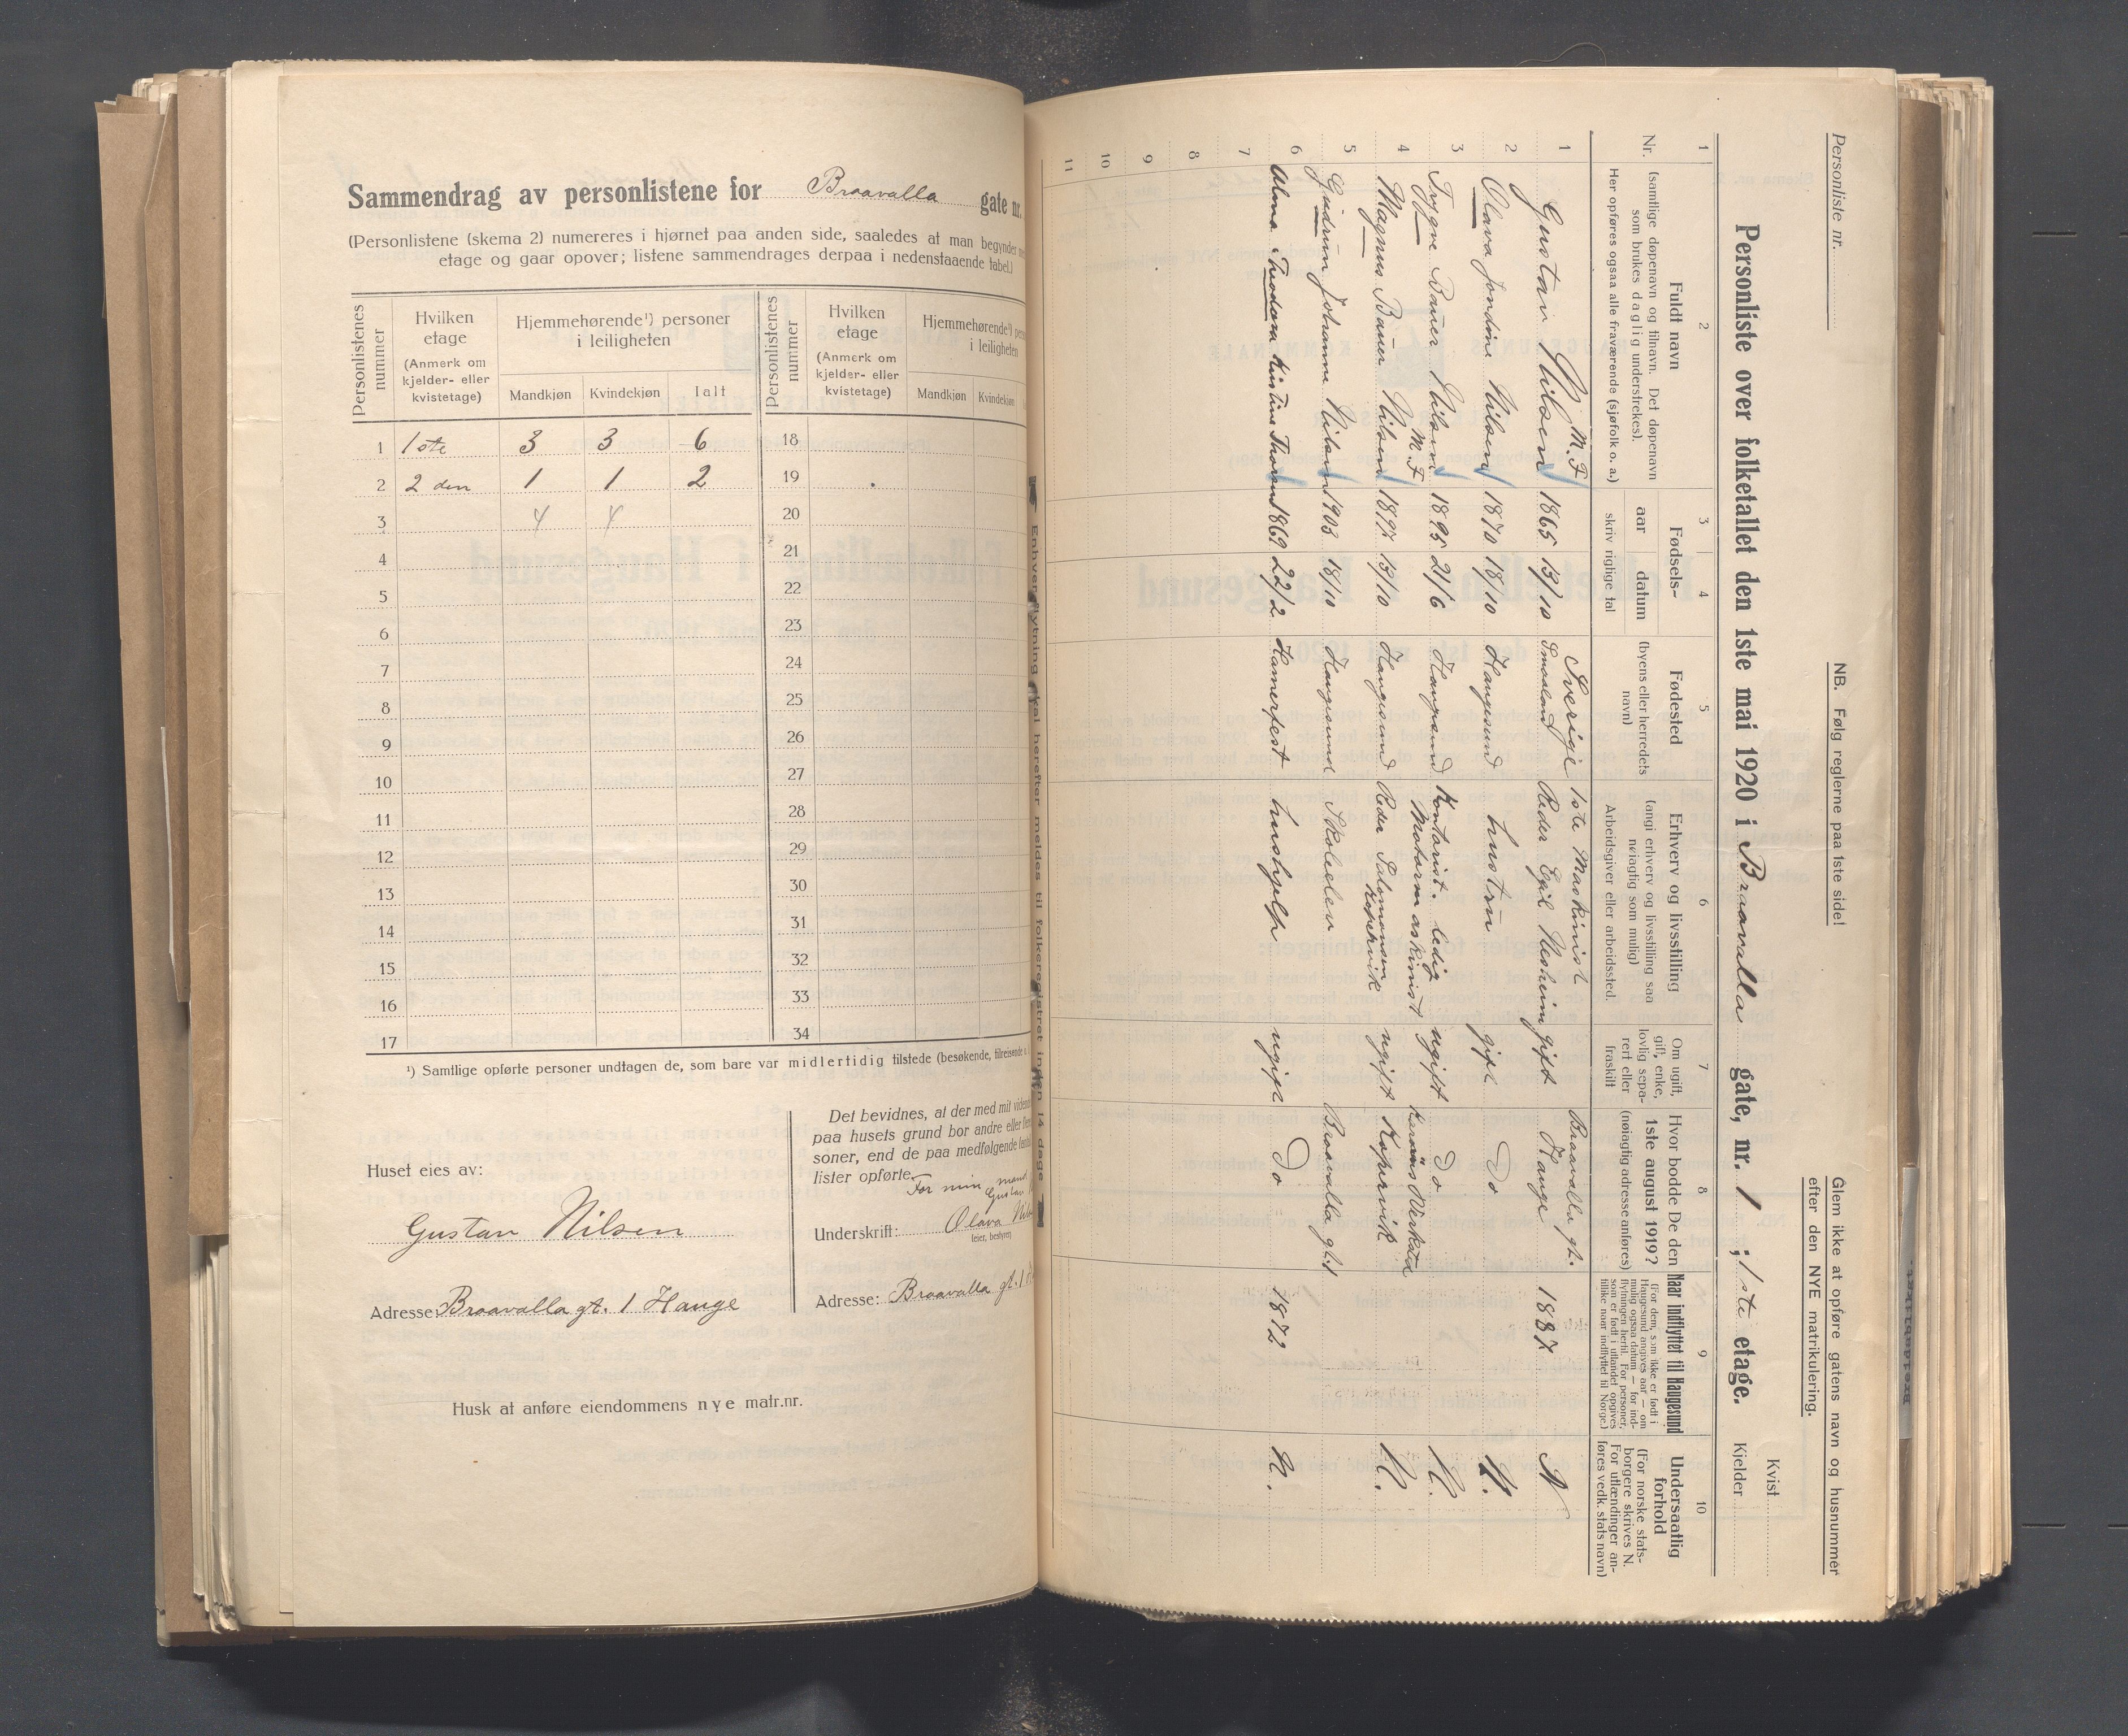 Sammendrag av personlistene for Braavalla gate nr.
(Personlistene (skema 2) numereres i hjørnet paa anden side, saaledes at man begynder
etage og gaar opover; listene sammendrages derpaa i nedenstaaende tabel.)
Personlistenes nummer
Hvilken etage
(Anmerk om kjelder- eller kvistetage)
Hjemmehørende¹) personer i leiligheten
Mandkjøn Kvindekjøn Ialt
Personlistenes nummer
Hvilken etage
(Anmerk om kjelder- eller kvistetage)
Hjemmehørende¹)
i leiligheten
Mandkjøn Kvindekjøn
1 1ste 3 3 6 18
2 2den 1 1 2 19
3 4 4 20
4 21
5 22
6 23
7 24
8 25
9 26
10 27
11 28
12 29
13 30
14 31
15 32
16 33
17 34
¹) Samtlige opførte personer undtagen de, som bare var midlertidig tilstede (besøkende, tilreisende
Huset eies av:
Gustav Nilsen
Adresse: Braavalla gt. 1 Hauge
Det bevidnes, at der med mit vidende
paa husets grund bor andre eller
soner, end de paa medfølgende
lister opførte.
For min mand
Gustav
Underskrift: Olava
(eier, bestyrer)
Adresse: Braavalla gt. 1
Husk at anføre eiendommens nye matr.nr.
Enhver flytning skal herefter meldes til folkeregistret inden 14 dage
Personliste nr.
NB. Følg reglerne paa 1ste side!
Glem ikke at opføre gatens navn og husnummer
efter den NYE matrikulering.
Personliste over folketallet den 1ste mai 1920 i Braavalla gate, nr. 1 ; 1ste etage.
Kvist
Kjelder
1 2 3 4 5 6 7 8 9 10
Nr.
Fuldt navn
(samtlige døpenavn og tilnavn. Det døpenavn
som brukes daglig understrekes).
Her opføres ogsaa alle fraværende (sjøfolk o. a.)
Fødsels-
aar datum
skriv rigtige tal
Fødested
(byens eller herredets
navn)
Erhverv og livsstilling
(angi erhverv og livsstilling saa
nøiagtig som mulig)
Arbeidsgiver eller arbeidssted.
Om ugift,
gift, enke,
lovlig sepa-
rert eller
fraskilt
Hvor bodde De den
1ste august 1919?
(nøiagtig adresse anføres)
Naar indflyttet til Haugesund
(For dem, som ikke er født i
Haugesund angives aar — om
mulig ogsaa datum — for ind-
flytningen hertil. For personer,
som er født i utlandet opgives
tillike naar indflyttet til Norge.)
Undersaatlig
forhold
(For norske stats-
borgere skrives N.
For utlændinger an-
føres vedk. stats navn)
M.F. Sverige 1ste Maskinist Braavalla gt.
1 Gustav Nilsen 1865 13/10 Smaaland Reder Egil Nesheim gift Hauge 1887 N
2 Olava Jondine Nilsen 1870 18/10 Haugesund hustru gift Do N.
3 Trygve Bauer Nilsen 1895 21/6 Haugesund Kontorist. ledig ugift Do N.
M.F. Motormaskinist Verksted
4 Magnus Bauer Nilsen 1897 13/10 Haugesund Reder Salomonsen Kopervik ugift Kopervik N.
5 Gudrun Johanne Nilsen 1903 18/10 Haugesund Skoleelev Braavalla gt. 1
6 Alma Teodora Kristine 1869 22/2 Hamerfest hushjelp ugift Do 1872 N.
7
8
9
10
11